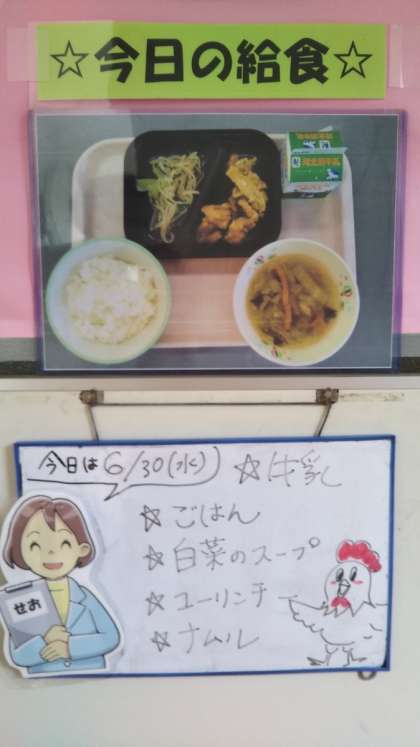 ☆今日の給食☆
今日は 6/30(水)
☆牛乳
☆ごはん
☆白菜のスープ
☆ユーリンチ
☆ナムル
せお